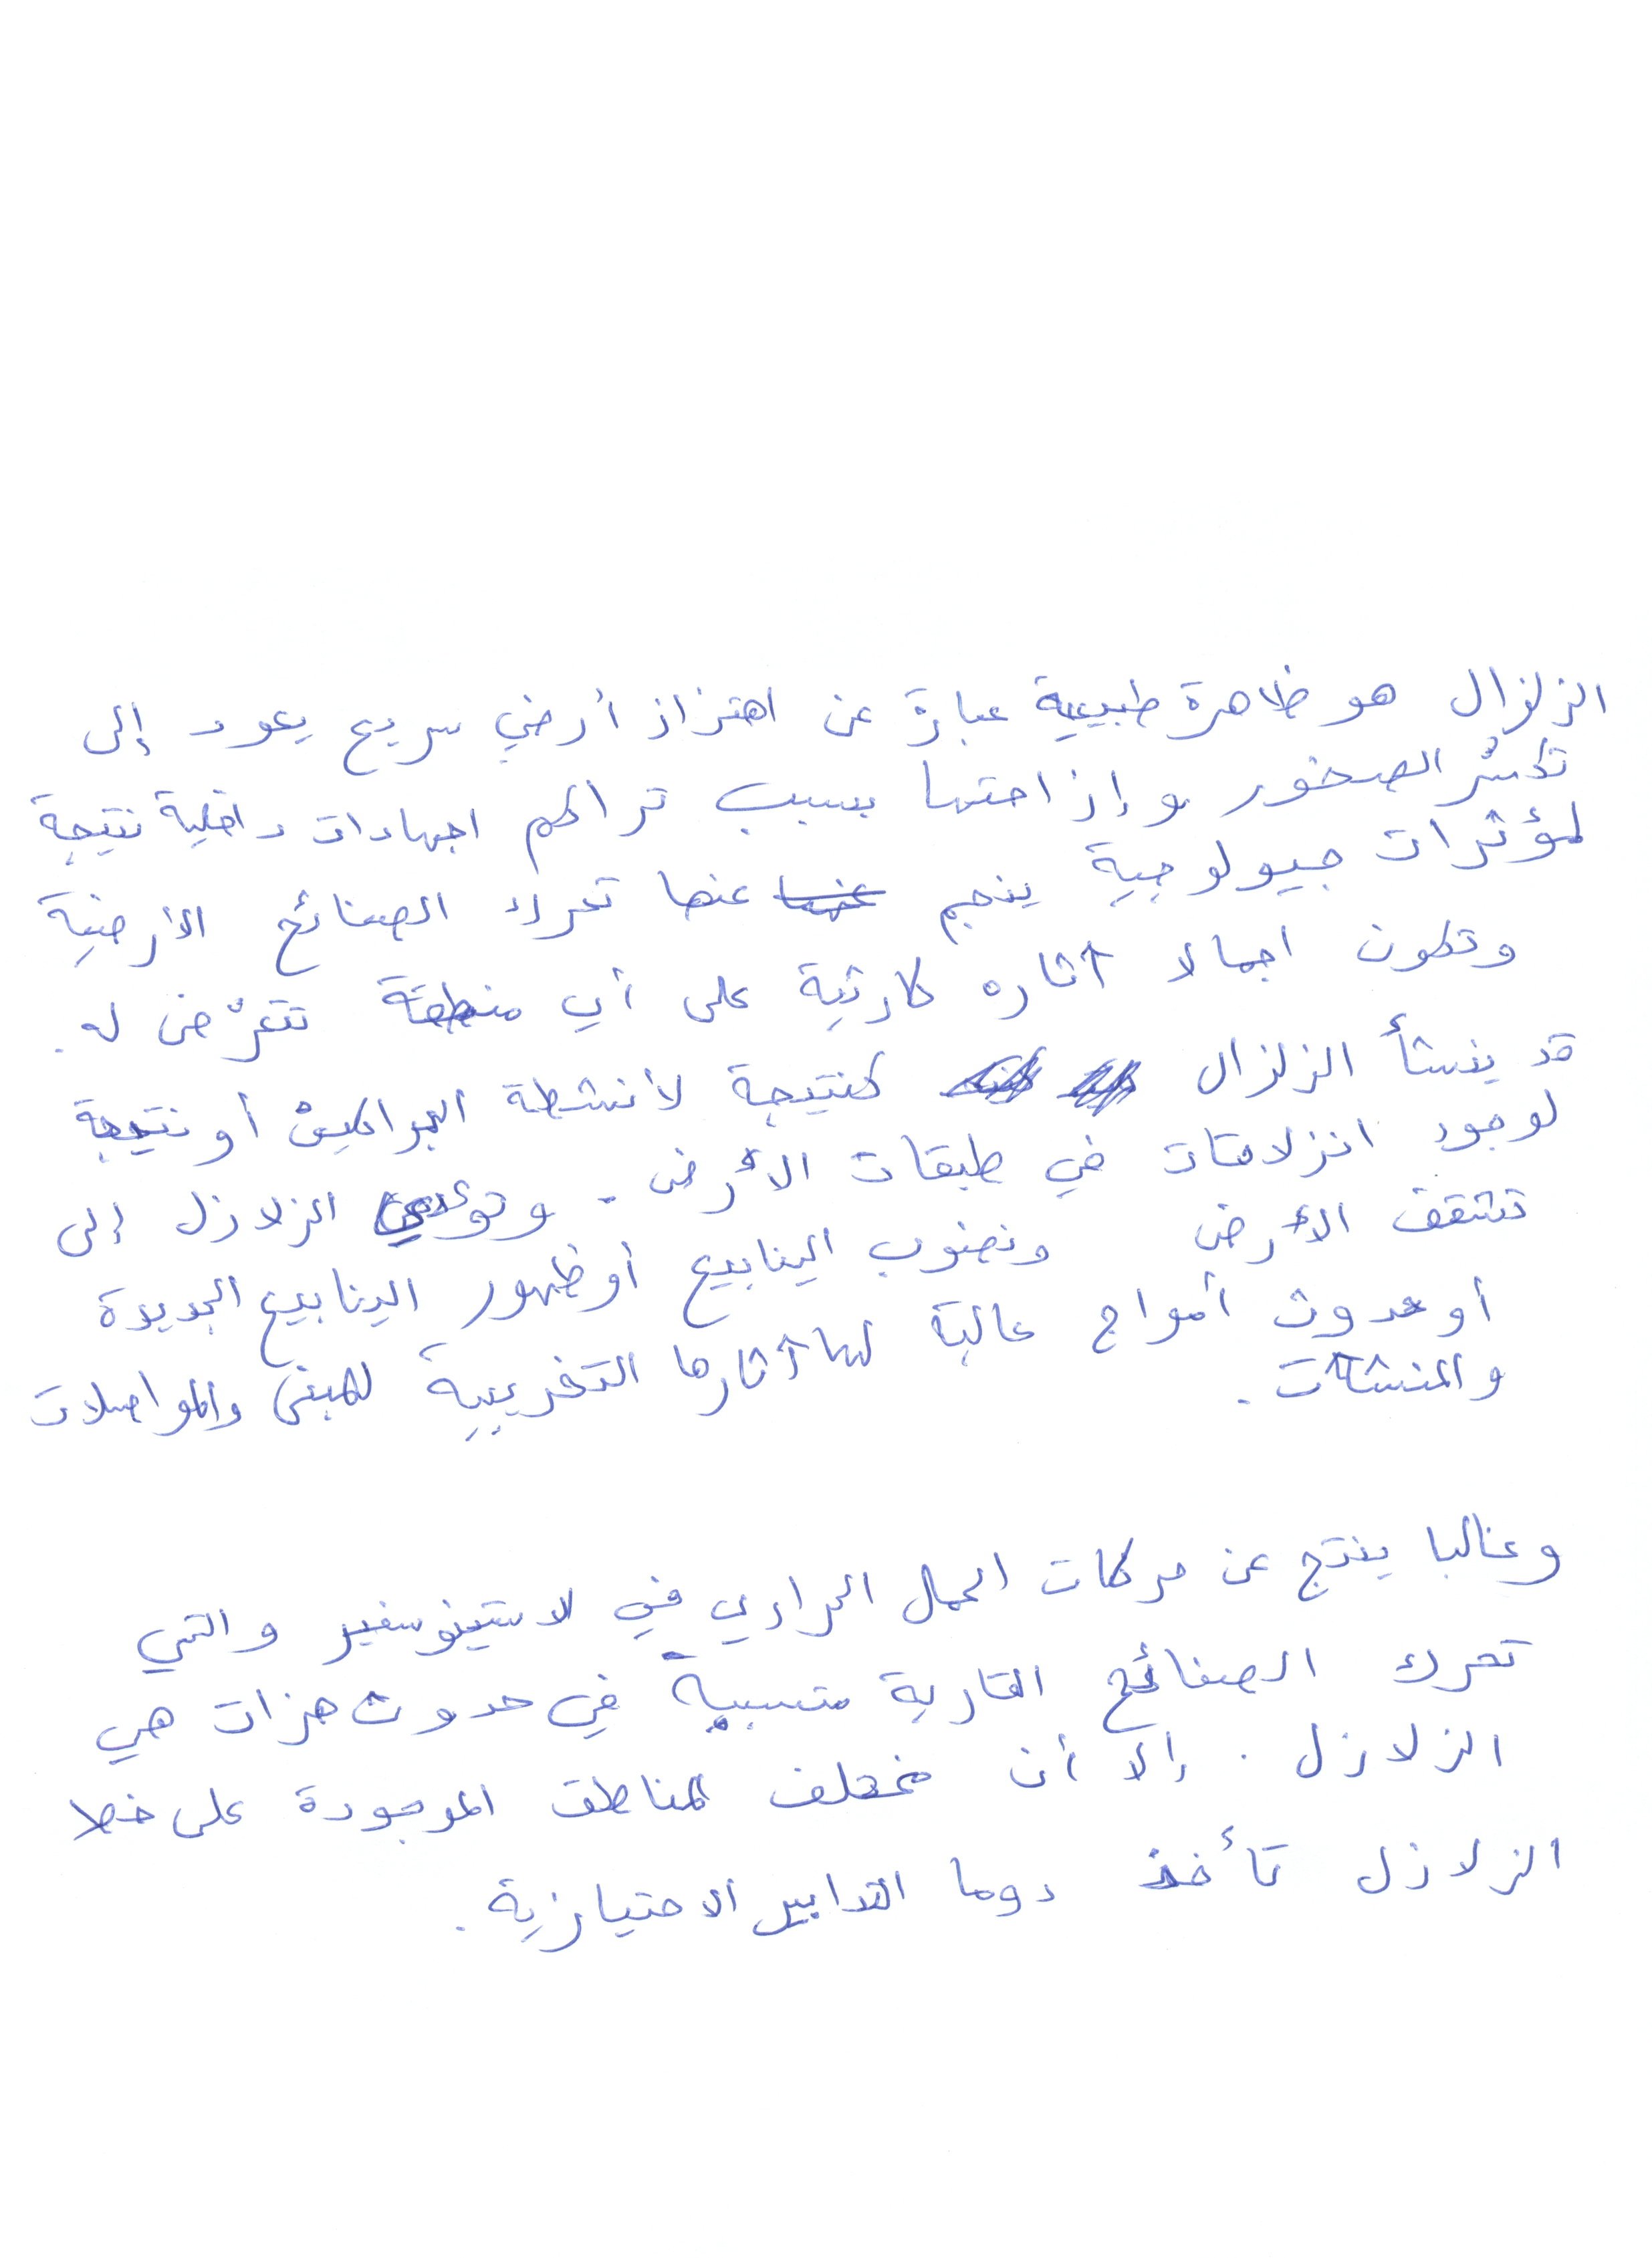 الزلزال هو ظاهرة طبيعية عبارة عن اهتزاز أرضي سريع يعود إلى
تكسّر الصخور وإزاحتها بسبب تراكم اجهادات داخلية نتيجة
لمؤثرات جيولوجية ينجم عنها عنها تحرك الصفائح الأرضية
وتكون اجمالا آثاره كارثية على أي منطقة تتعرّض له.
قد ينشأ الزلزال كنتيجة لأنشطة البراكين أو نتيجة
لوجود انزلاقات في طبقات الأرض. وتؤدي الزلازل إلى
تشقق الأرض ونضوب الينابيع أو ظهور الينابيع الجديدة
أو حدوث أمواج عالية لها آثارها التخريبية للمبنى والمواصلات
والمنشآت.
وغالبا ينتج عن حركات الحمل الحراري في لاستينوسفير والتي
تحرك الصفائح القارية متسببة في حدوث هزات هي
الزلازل. إلا أن مختلف المناطق الموجودة على خط
الزلازل تأخذ دوما التدابير الاحتيازية.